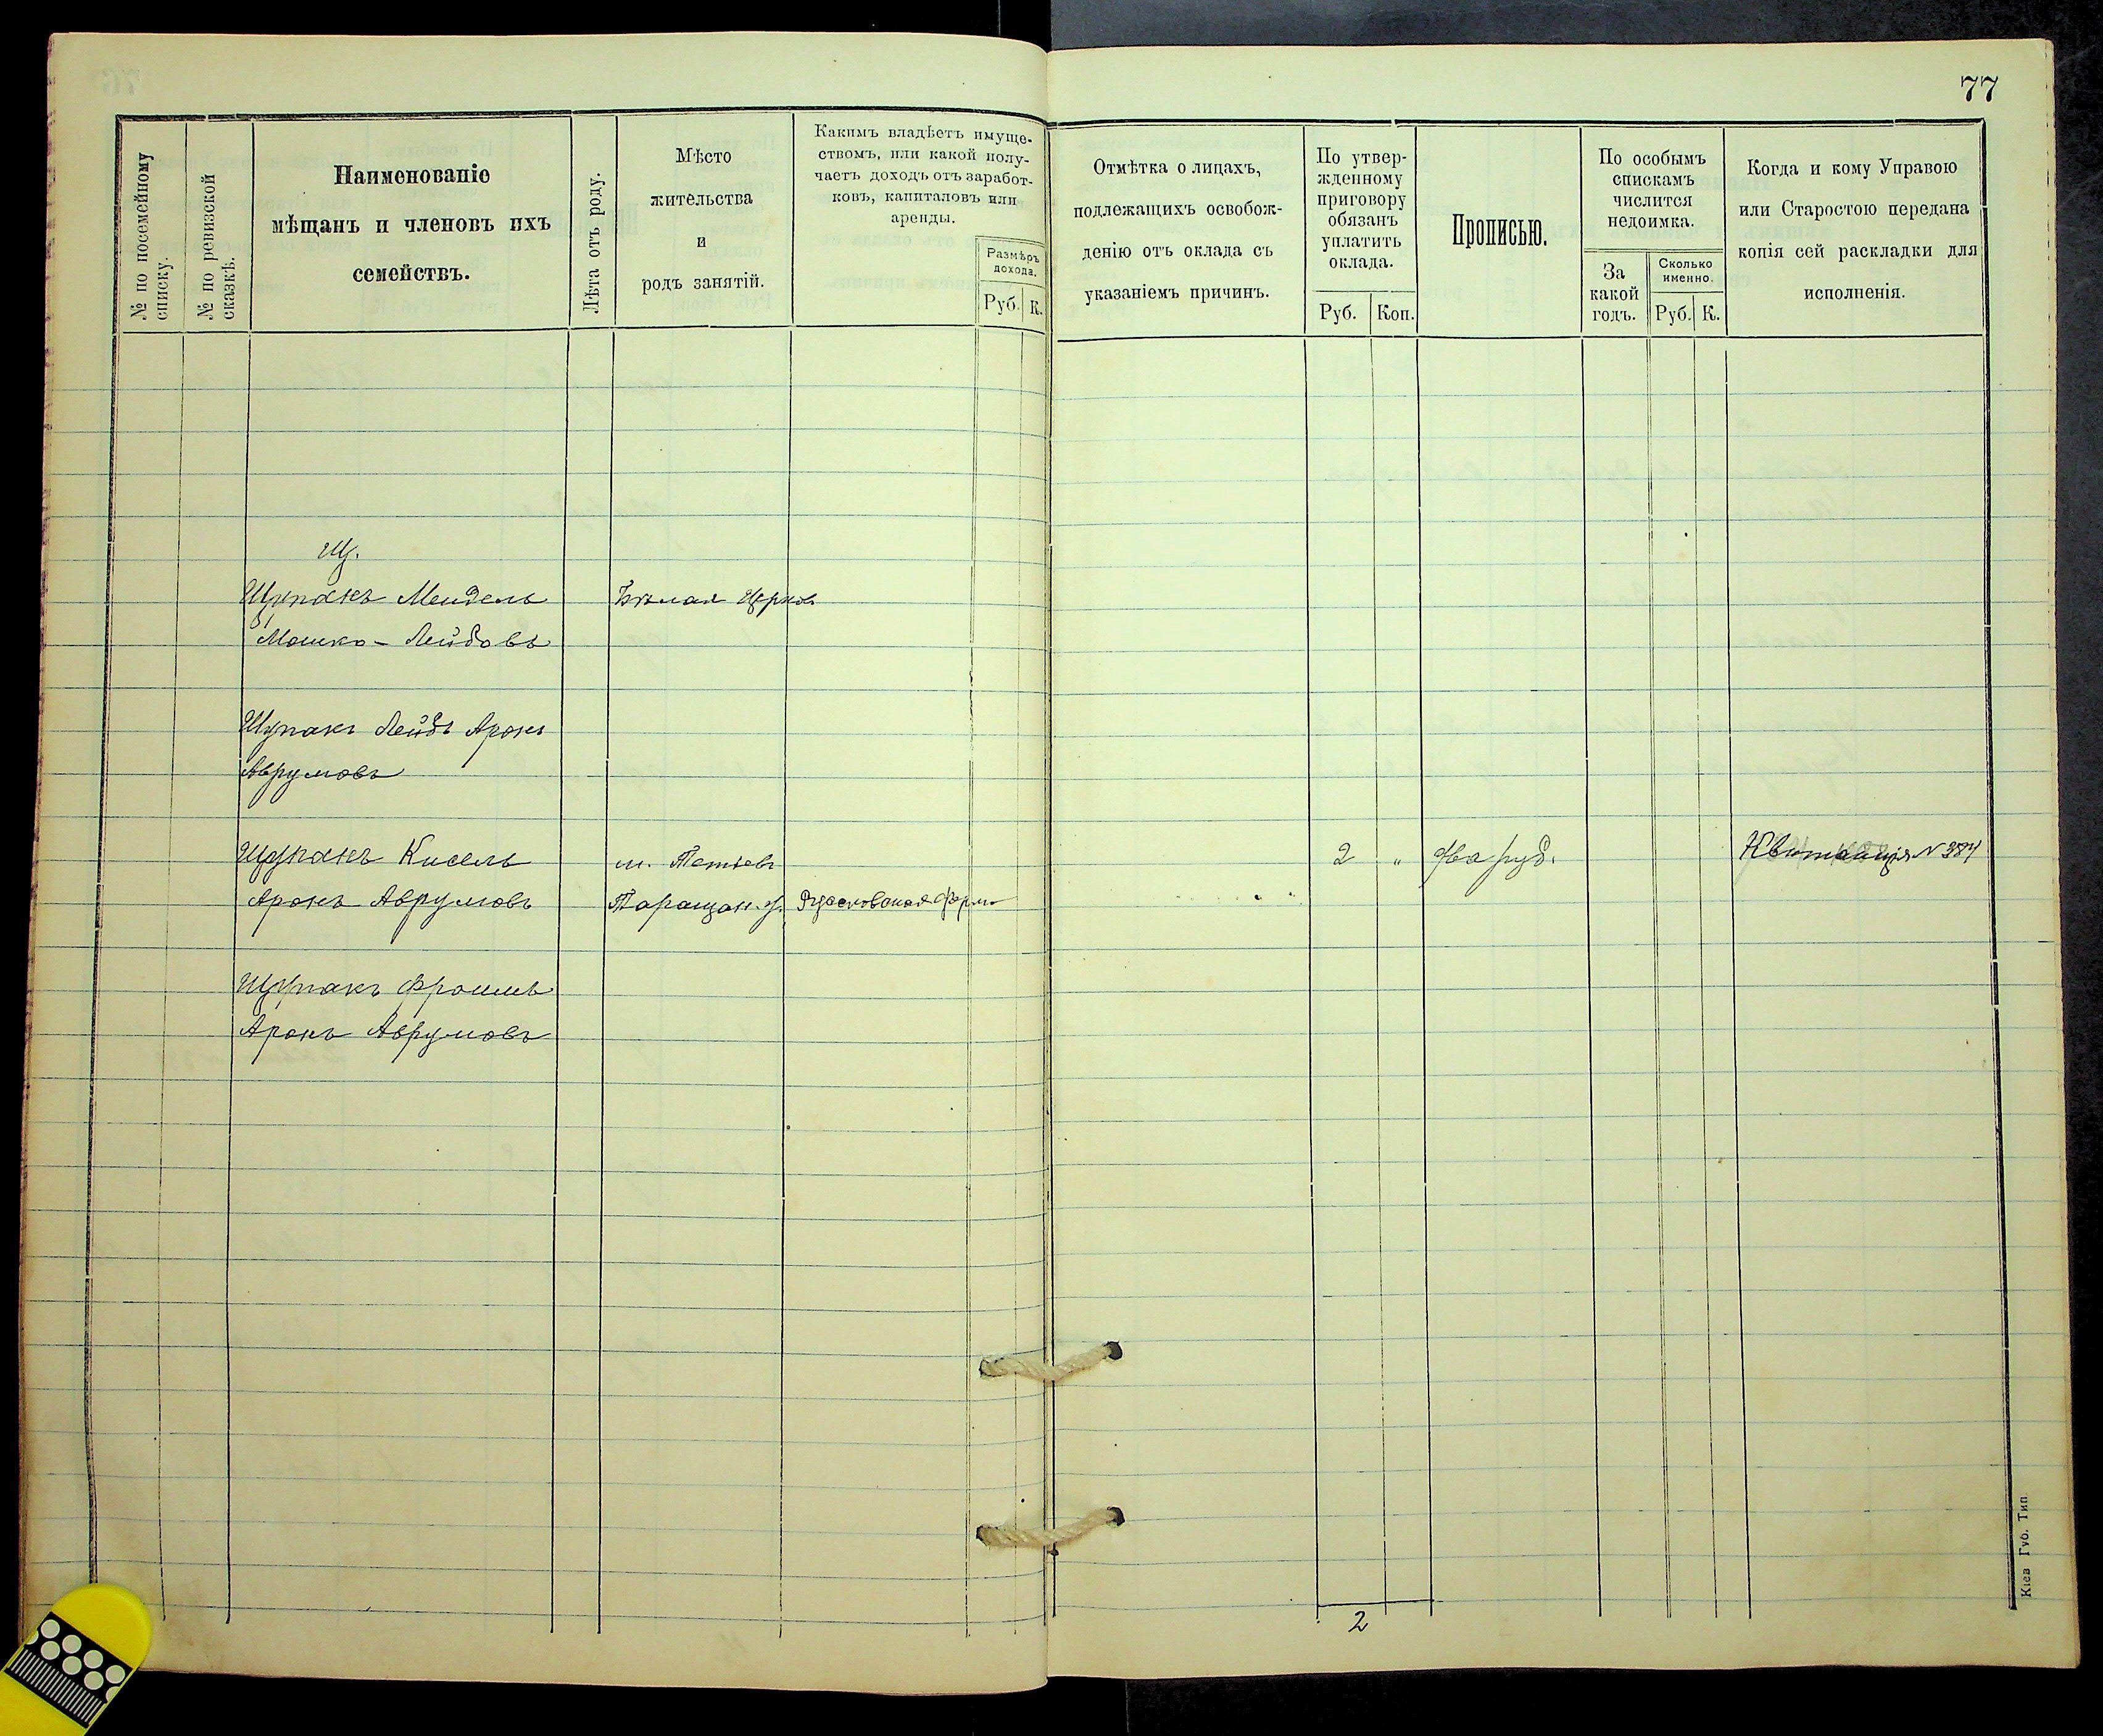 77
№ по посемейному списку.
№ по ревизской сказкѣ.
Наименованіе
мѣщанъ и членовъ ихъ
семействъ.
Лѣта отъ роду.
Мѣсто
жительства
и
родъ занятій.
Какимъ владѣетъ имуще-
ствомъ, или какой полу-
чаетъ доходъ отъ заработ-
ковъ, капиталовъ или
аренды.
Размѣръ
дохода.
Руб. К.
Отмѣтка о лицахъ,
подлежащихъ освобож-
денію отъ оклада съ
указаніемъ причинъ.
По утвер-
жденному
приговору
обязанъ
уплатить
оклада.
Руб. Коп.
Прописью.
По особымъ
спискамъ
числится
недоимка.
За
какой
годъ.
Сколько
именно.
Руб. К.
Когда и кому Управою
или Старостою передана
копія сей раскладки для
исполненія.
Щ.
Щупакъ Мендель Бѣлая Церковь
Мошко-Лейбовъ
Щупакъ Лейбъ Аронъ
Аврумовъ
Щупакъ Кисель м. Тетіевъ 2 " Два руб. Квитанція N 384
Аронъ Аврумовъ Таращан. у.
Щупакъ Фроимъ
Аронъ Аврумовъ
2
Кіев Губ. Тип.